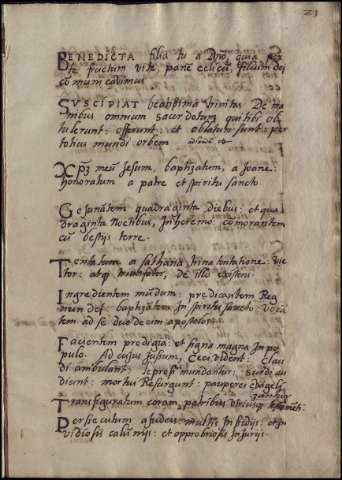 21
BENEDICTA filia tu a Dño, quia per
te fructum vite, panẽ celicũ, filium dei
comunicavimus
SUSCIPIAT beatissima trinitas De ma
nibus omnium sacerdotum, qui tibi ob
tulerunt: offerunt: et oblaturi sunt: per
totius mundi orbem
Xp̃m meũ Jesum, baptizatum, a Joane
honoratum a patre et spiritu sancto
Jejunãtem quadraginta Diebus: et qua
draginta Noctibus, In heremo comorantem
cũ bestijs terre.
Tentatum a sathana trina tentatione. vic
tor: atq̃ triũfator, de illo existens
Ingredientem mũdum: predicantem Reg
num dei: baptizãtem In spiritu sancto: vocã
tem ad se duodecim apostolos.
Facientem prodigia: et signa magna In po
pulo. Ad cujus jusum, Ceci vident: Clau
di ambulant: leprosi mundantur: Surdi au
diunt: mortui Resurgunt: pauperes
Transfiguratum coram, patribus utriusq̃
Persecutum a judeis: multis Insidijs: et In
vidiosis calũnijs: et opprobriosis Injurijs